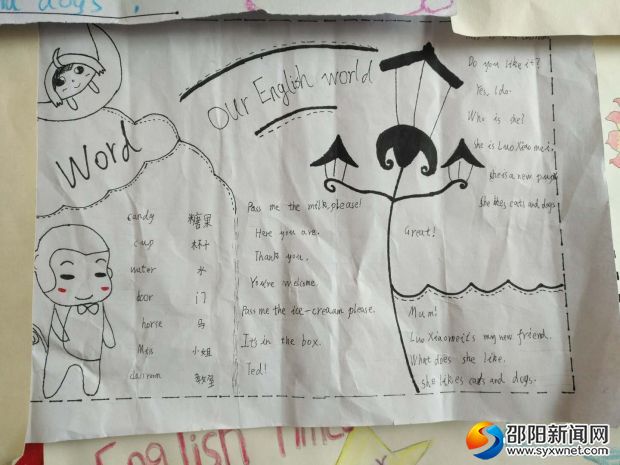 dogs.
Our English world
Word
candy 糖果
cup 杯子
water 水
door 门
horse 马
Miss 小姐
classroom 教室
Pass me the milk, please!
Here you are.
Thank you.
You're welcome.
Pass me the ice-cream please.
It's in the box.
Ted!
Do you like it?
Yes, I do.
Who is she?
she is Luo Xiao mei.
she is a new pupil
She likes cats and dogs
Great!
Mum!
Luo Xiaomei's my new friend.
What does she like.
she likes cats and dogs.
English Times
邵阳新闻网
www.syxwnet.com